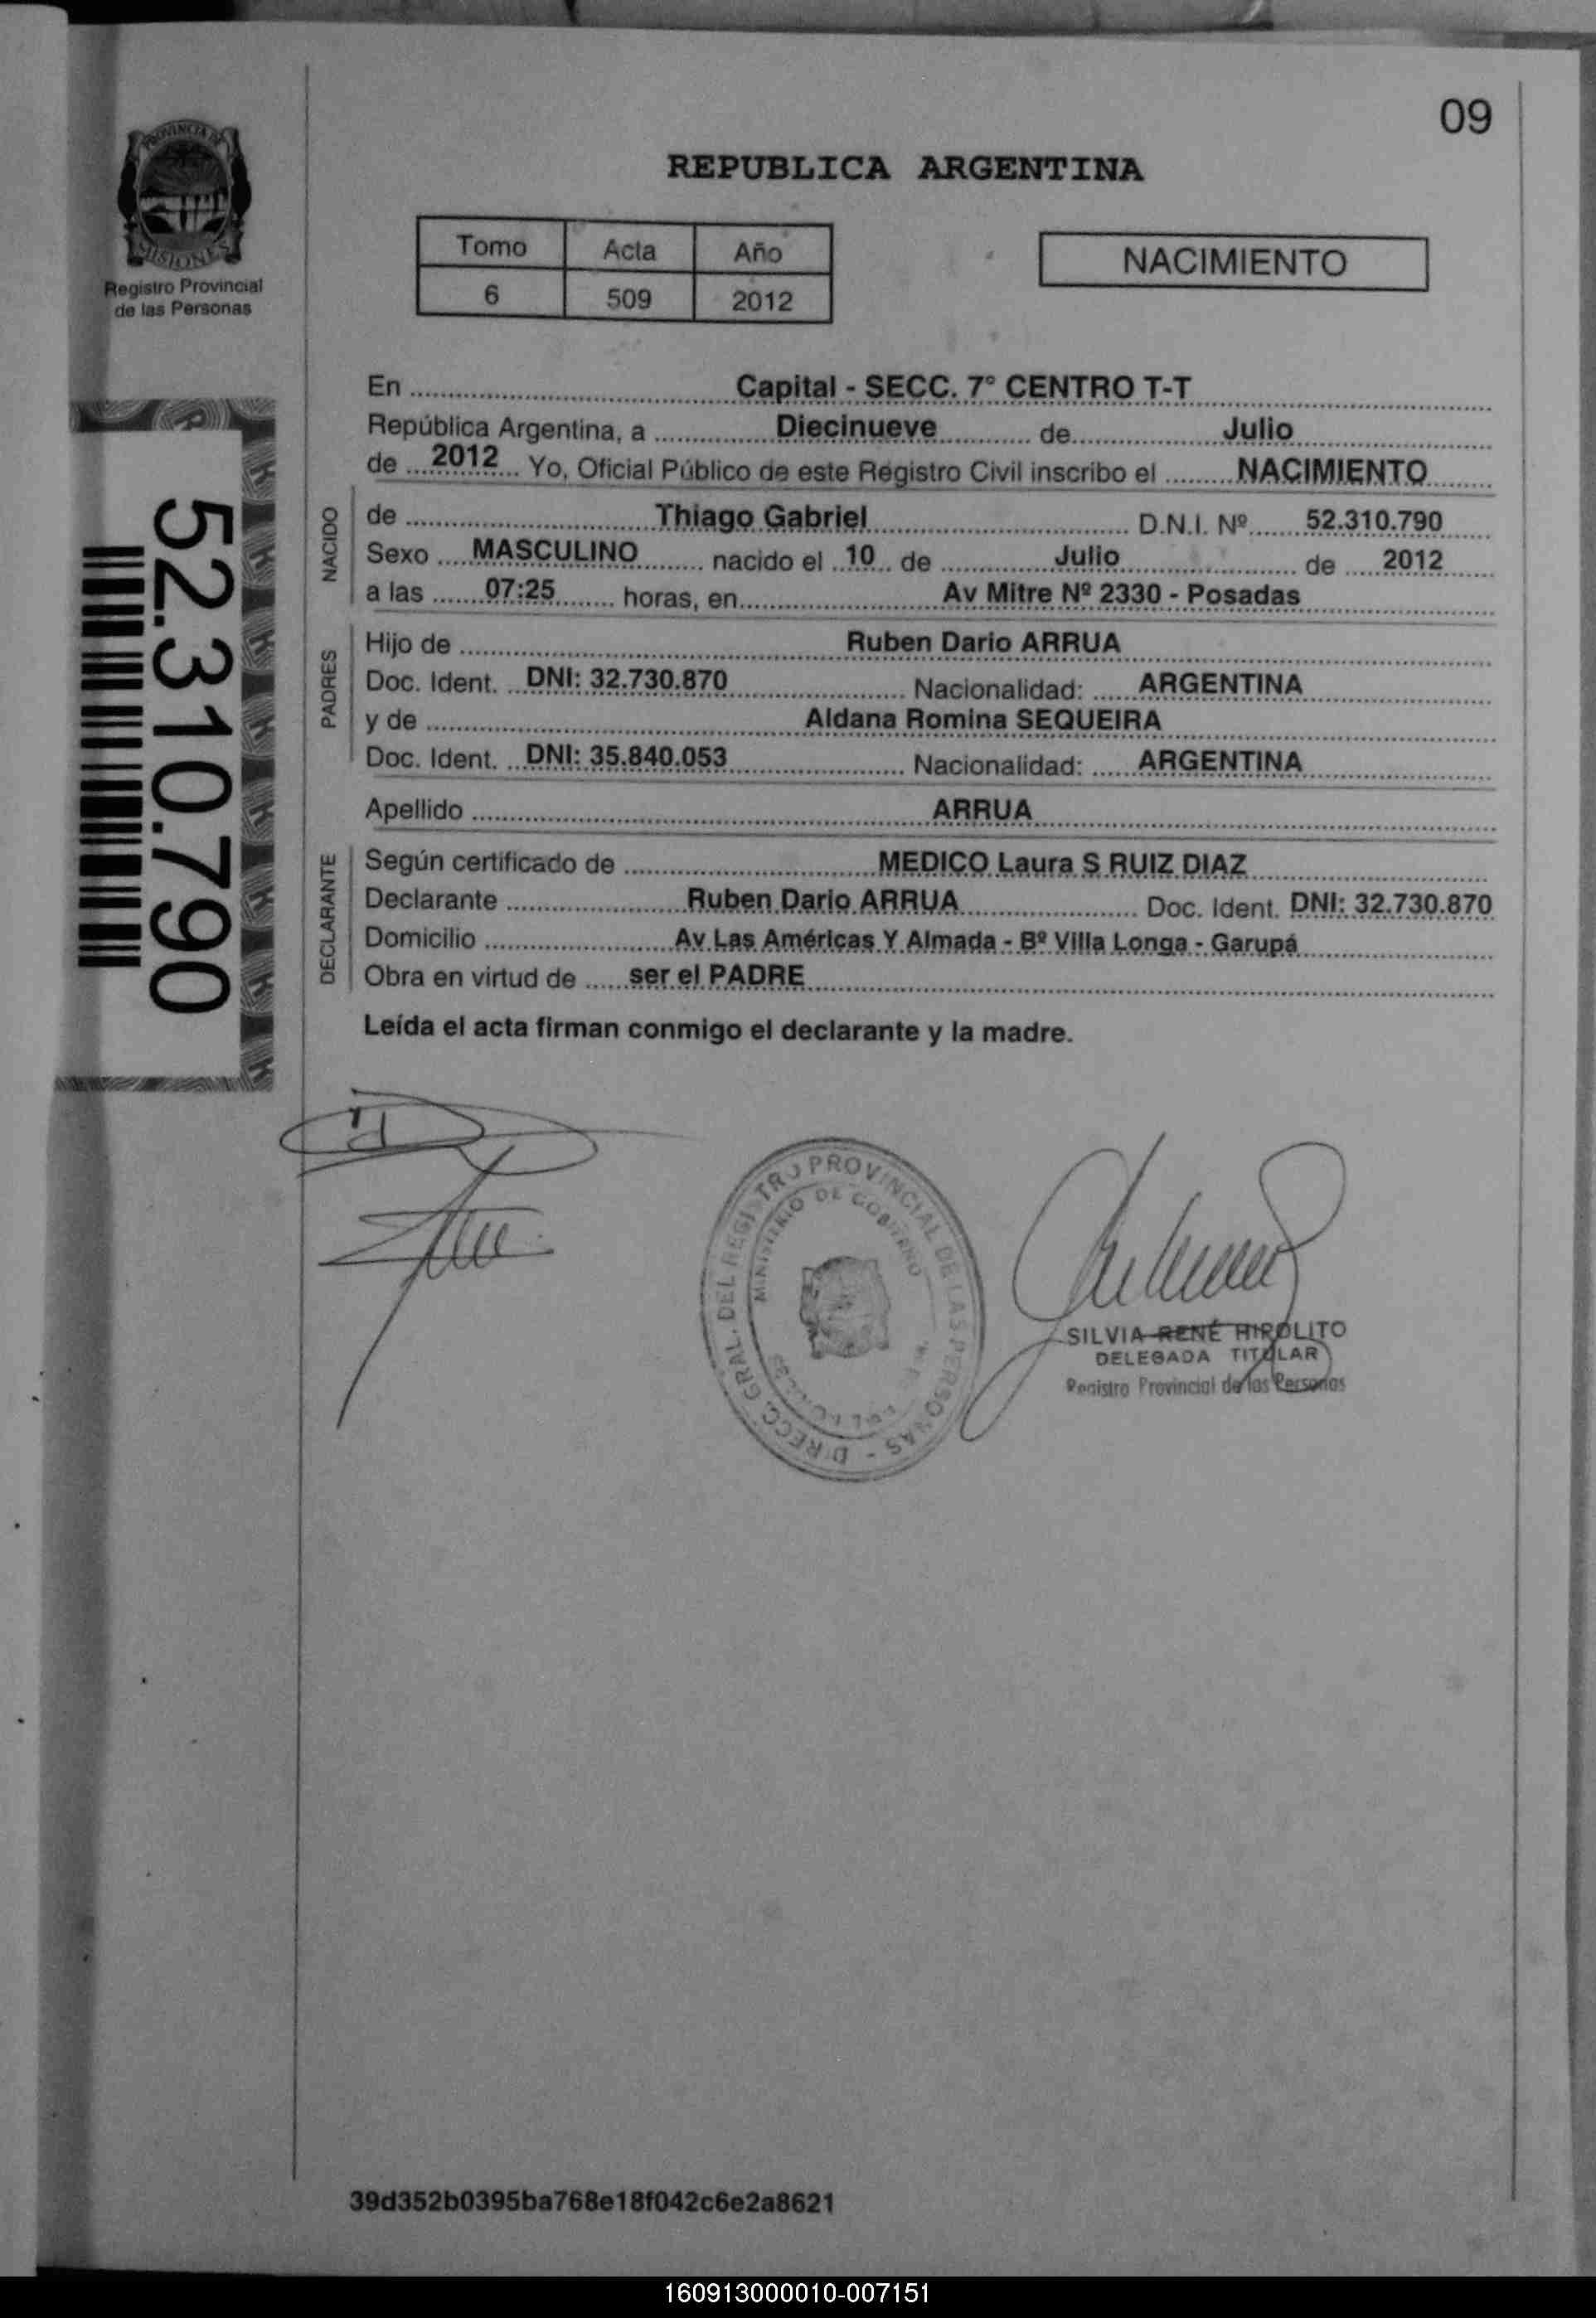 09
PROVINCIA DE
MISIONES
Registro Provincial
de las Personas
REPUBLICA ARGENTINA
Tomo Acta Año
6 509 2012
NACIMIENTO
52.310.790
En Capital - SECC. 7° CENTRO T-T
República Argentina, a Diecinueve de Julio
de 2012 Yo, Oficial Público de este Registro Civil inscribo el NACIMIENTO
NACIDO
de Thiago Gabriel D.N.I. Nº 52.310.790
Sexo MASCULINO nacido el 10 de Julio de 2012
a las 07:25 horas, en Av Mitre Nº 2330 - Posadas
PADRES
Hijo de Ruben Dario ARRUA
Doc. Ident. DNI: 32.730.870 Nacionalidad: ARGENTINA
y de Aldana Romina SEQUEIRA
Doc. Ident. DNI: 35.840.053 Nacionalidad: ARGENTINA
Apellido ARRUA
DECLARANTE
Según certificado de MEDICO Laura S RUIZ DIAZ
Declarante Ruben Dario ARRUA Doc. Ident. DNI: 32.730.870
Domicilio Av Las Américas Y Almada - Bº Villa Longa - Garupá
Obra en virtud de ser el PADRE
Leída el acta firman conmigo el declarante y la madre.
DIRECC. GRAL. DEL REGISTRO PROVINCIAL DE LAS PERSONAS -
MINISTERIO DE GOBIERNO
SILVIA RENÉ HIPOLITO
DELEGADA TITULAR
Registro Provincial de las Personas
39d352b0395ba768e18f042c6e2a8621
160913000010-007151